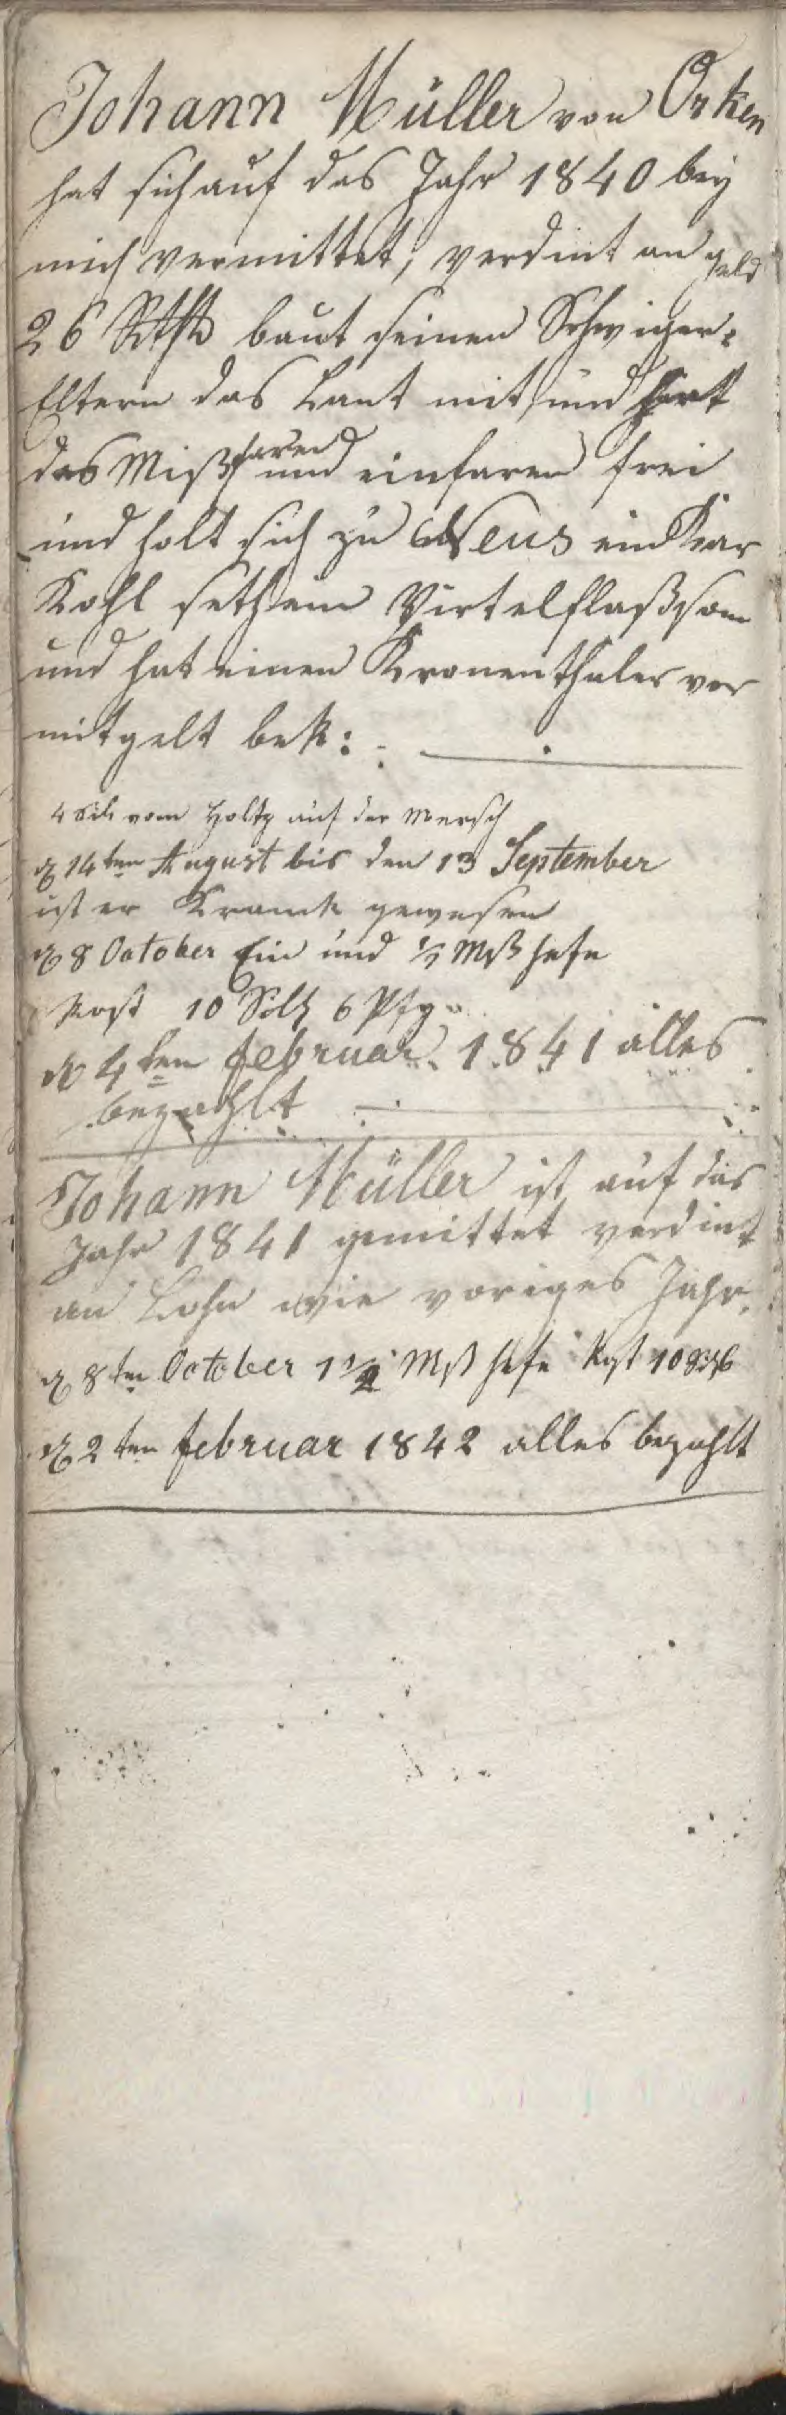 Johann Müller von Orken
hat sich auf das Jahr 1840 bey
mich vermittet, verdint an geld
26 Rthlr baut seinen Schwiger-
Eltern das Lant mit und hat
das Mißfaren und einfaren frei
und holt sich zu Neus ein Kar
Kohl seth ein Virtel flaßsom
und hat einen Kronenthaler vor
mitgelt bek:
4 Silb vom Holtz auf der Mersch
d 14ten August bis den 13 September
ist er Kranck gewesen
d 8 October Ein und 1/2 Mß hefe
Kost 10 Silb 6 Pfg
d 4ten februar 1841 alles
bezahlt
Johann Müller ist auf das
Jahr 1841 gemittet verdint
an Lohn wie voriges Jahr.
d 8ten October 1 1/2 Mß hefe kost 10
d 2ten februar 1842 alles bezahlt